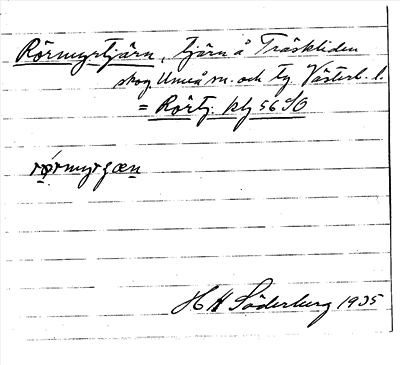 Rörmyrtjärn, tjärn å Träskliden
skog, Umeå sn. och tg. Västerb. l.
= Rörtj. kbl 56 SO
rörmyrçæn
H H Söderberg 1935